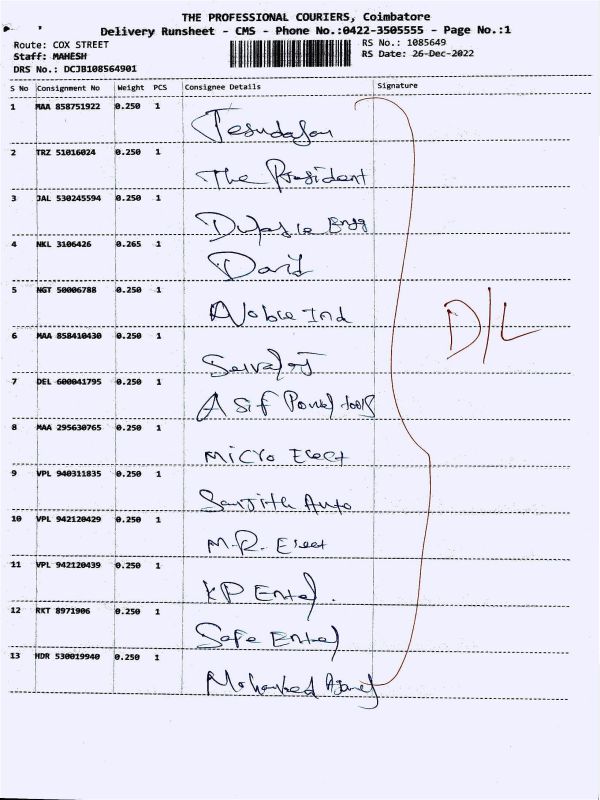 THE PROFESSIONAL COURIERS, Coimbatore
Delivery Runsheet - CMS - Phone No.:0422-3505555 - Page No.:1
Route: COX STREET
RS No.: 1085649
Staff: MAHESH
RS Date: 26-Dec-2022
DRS No.: DCJB108564901
S No Consignment No Weight PCS Consignee Details Signature
1 MAA 858751922 0.250 1
Jesudasan
2 TRZ 51016024 0.250 1
The President
3 JAL 530245594 0.250 1
Engg
4 NKL 3106426 0.265 1
David
5 NGT 50006788 0.250 1
Noble Ind
D/L
6 MAA 858410430 0.250 1
7 DEL 600041795 0.250 1
Asif Power tools
8 MAA 295630765 0.250 1
Micro Elect
9 VPL 940311835 0.250 1
Sanjith Auto
10 VPL 942120429 0.250 1
M.R. Elect
11 VPL 942120439 0.250 1
KP Enter.
12 RKT 8971906 0.250 1
Safe Enter
13 HDR 530019940 0.250 1
Mohamed